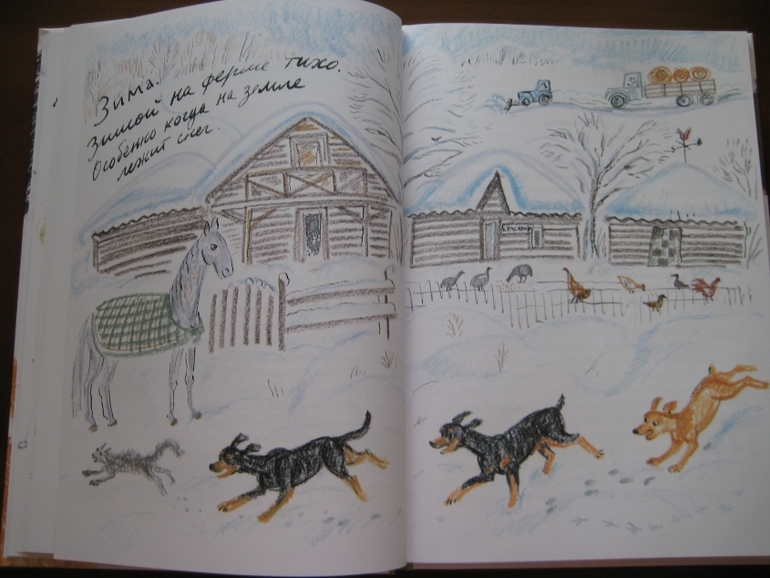 Зима.
Зимой на ферме тихо.
Особенно когда на земле
лежит снег.